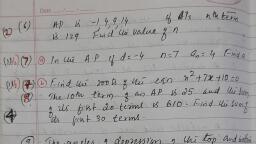 (2) (6) AP is -1, 4, 9, 14 if it's nth term
is 129 Find the value of n
(7) (a) In an A P if d=-4 n=7 an=4 Find a
(7) (b) Find the roots of the eqn x²+7x+10=0
(8) The 10th term of an AP is 25 and the sum
of its first 20 terms is 610. Find the sum of
its first 30 terms.
(9) The angles of depression of the top and